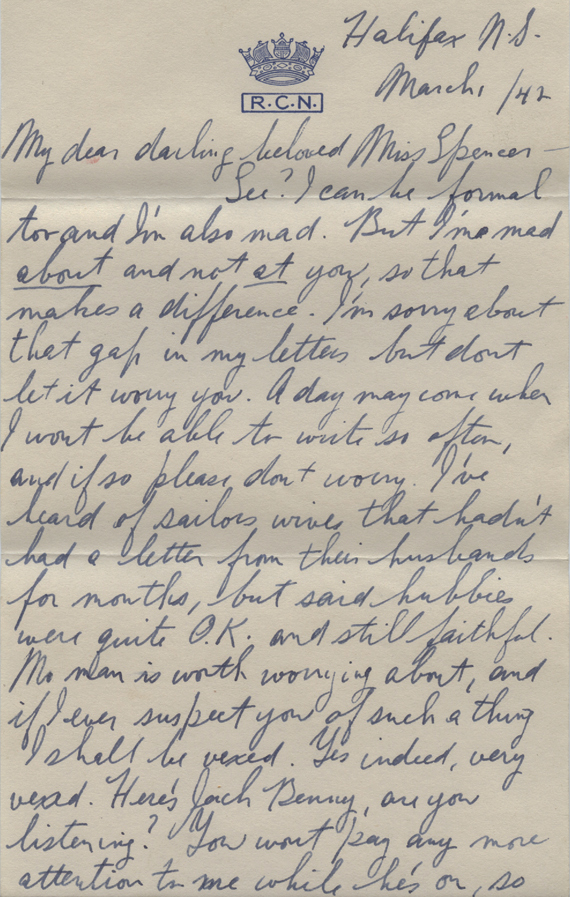 Halifax N.S.
R.C.N.
March 1/42
My dear darling beloved Miss Spencer —
See? I can be formal
too and I'm also mad. But I'm mad
about and not at you, so that
makes a difference. I'm sorry about
that gap in my letters but dont
let it worry you. A day may come when
I wont be able to write so often,
and if so please don't worry. I've
heard of sailors wives that hadn't
had a letter from their husbands
for months, but said hubbies
were quite O.K. and still faithful.
No man is worth worrying about, and
if I ever suspect you of such a thing
I shall be vexed. Yes indeed, very
vexed. Here's Jack Benny, are you
listening? You wont pay any more
attention to me while he's on, so